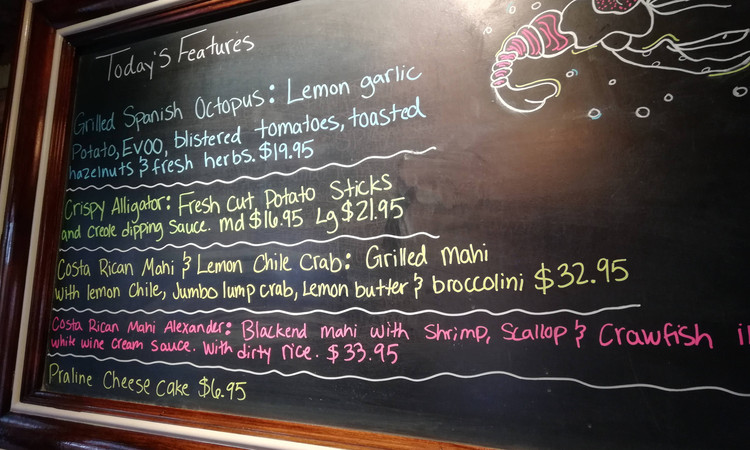 Today's Features
Grilled Spanish Octopus: Lemon garlic
Potato, EVOO, blistered tomatoes, toasted
hazelnuts & fresh herbs. $19.95
Crispy Alligator: Fresh cut Potato Sticks
and creole dipping sauce. md $16.95 Lg $21.95
Costa Rican Mahi & Lemon Chile Crab: Grilled Mahi
with lemon chile, Jumbo lump crab, Lemon butter & broccolini $32.95
Costa Rican Mahi Alexander: Blackend mahi with Shrimp, Scallop & Crawfish i
white wine cream sauce. With dirty rice. $33.95
Praline Cheese cake $6.95